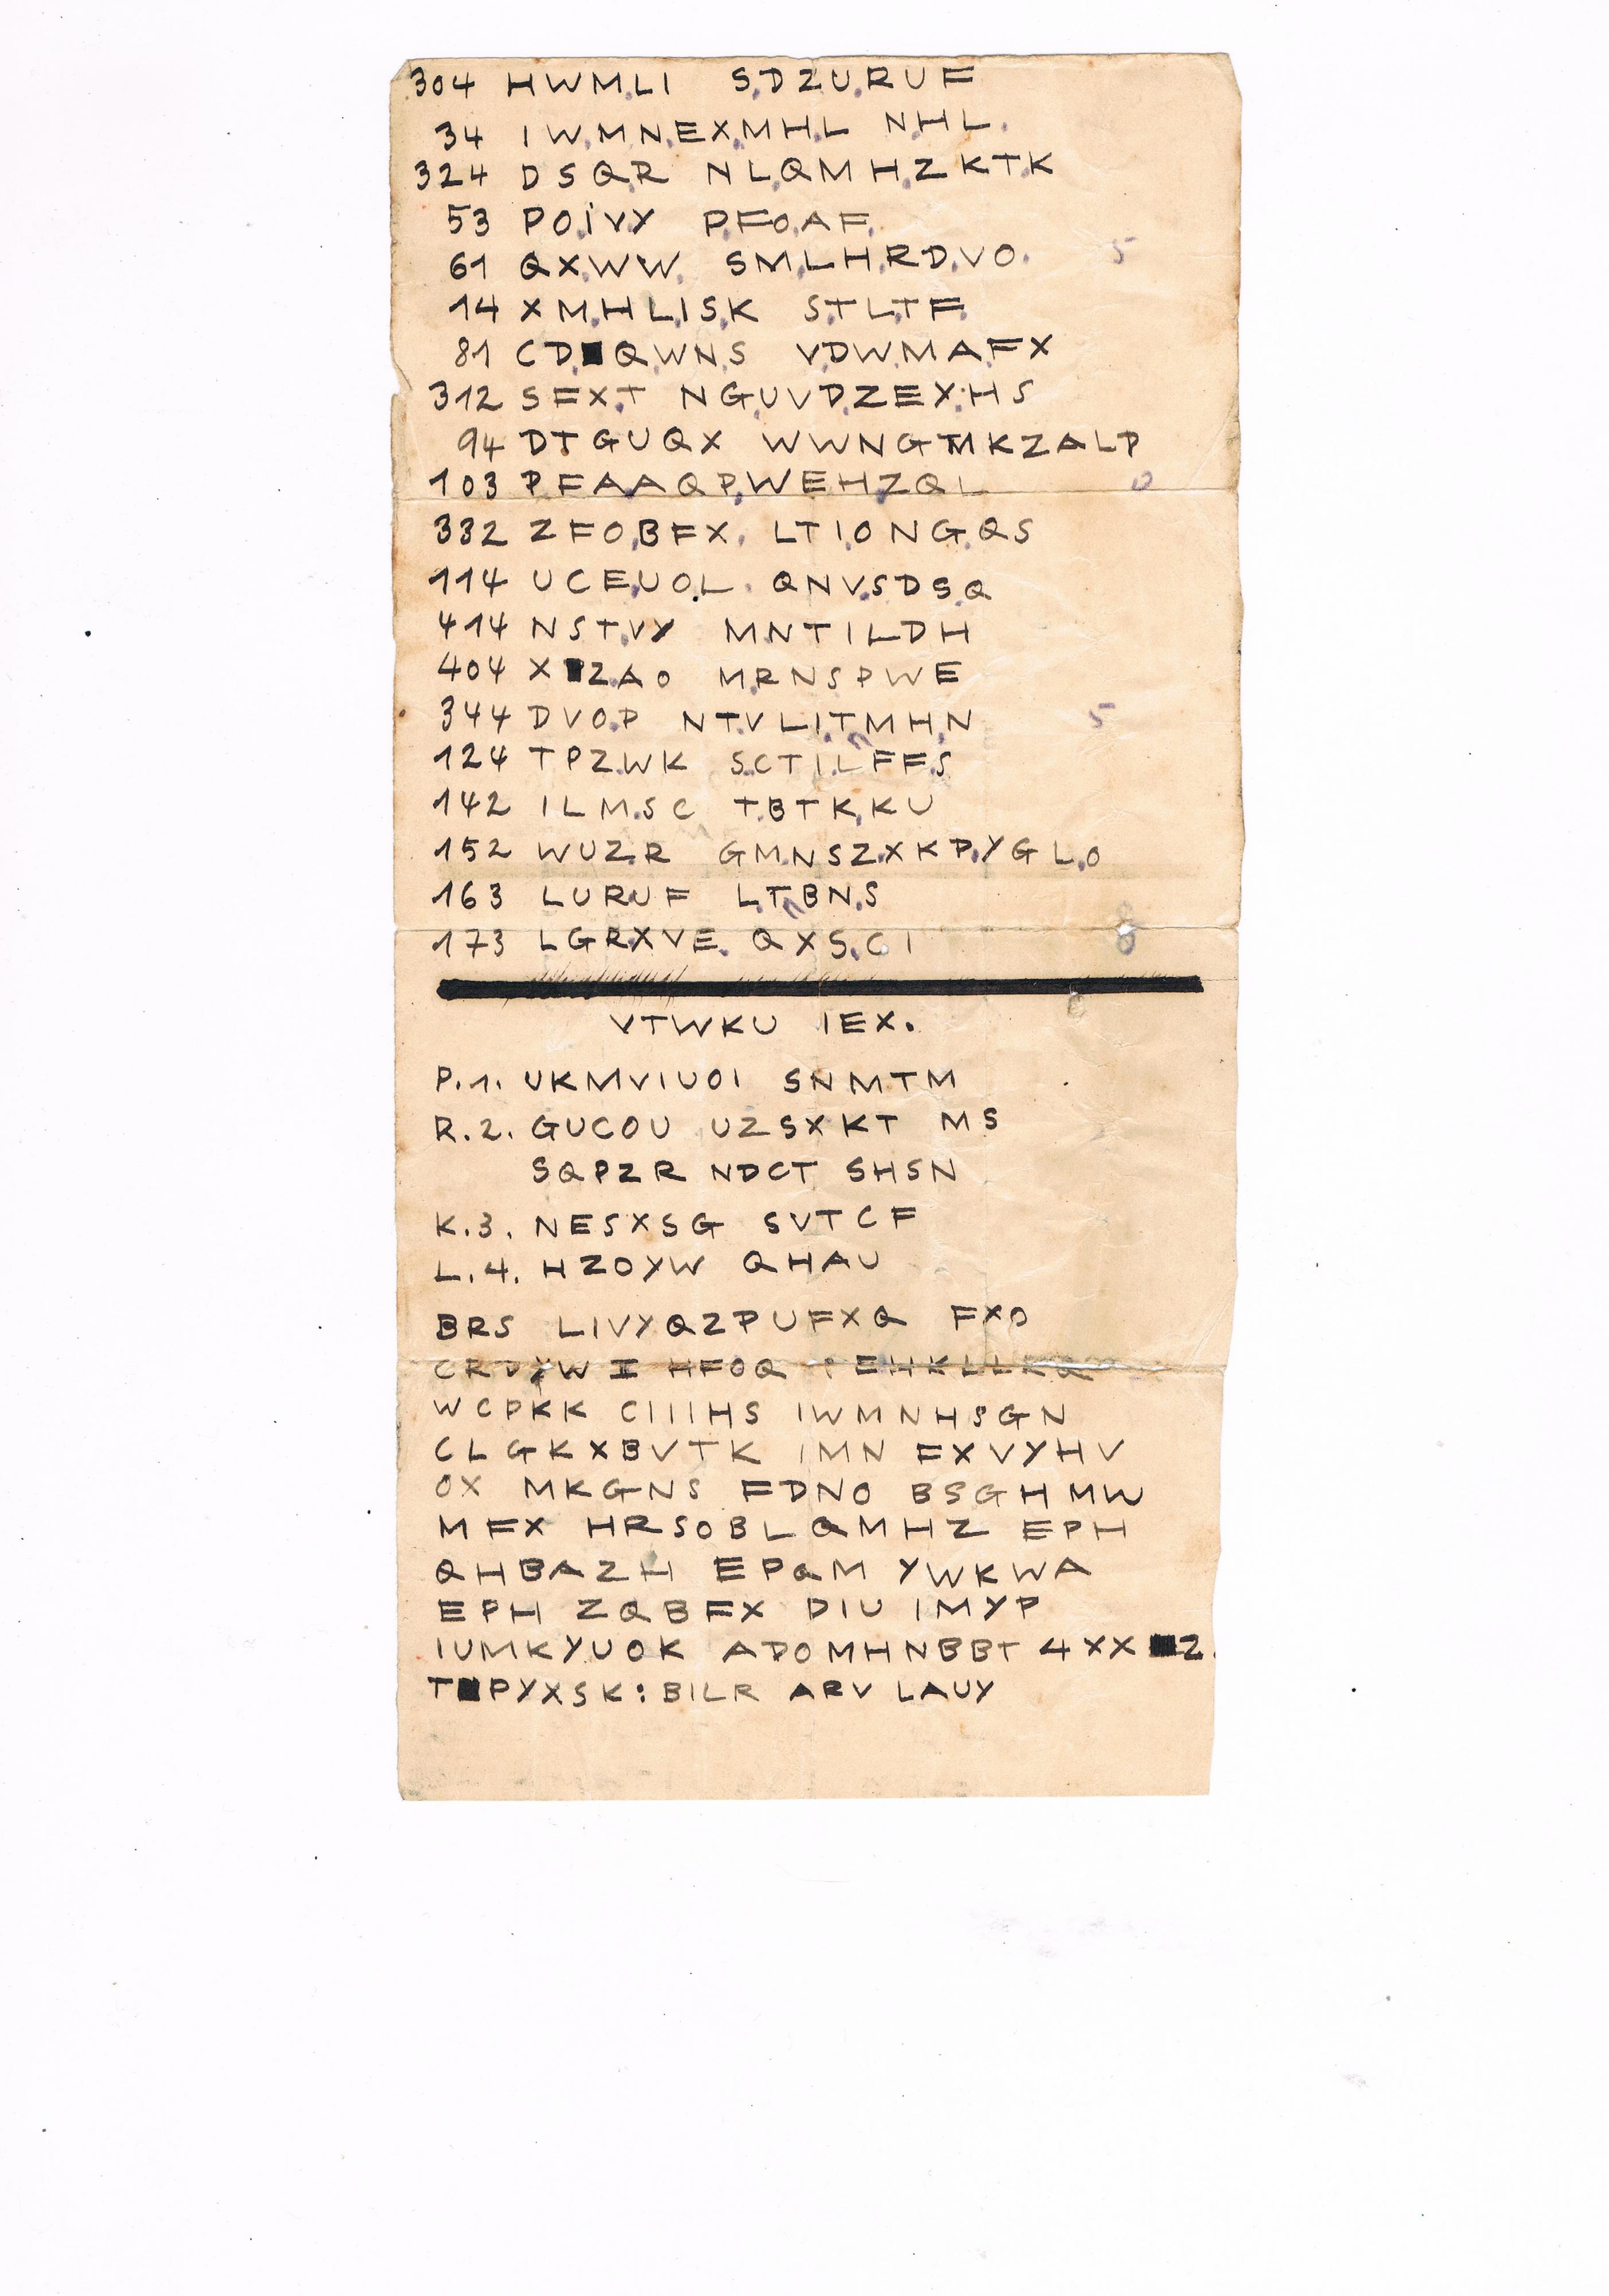 304 HWMLI SDZURUF
34 IWMNEXMHL NHL.
324 DSQR NLQMHZKTK
53 POIVY PFOAF
61 QXWW SMLHRDVO. 5
14 XMHLISK STLTF
81 CD QWNS VDWMAFX
312 SFXT NGUVDZEXHS
94 DTGUQX WWNGTMKZALP
103 PFAAQPWEHZQL
332 ZFOBFX LTIONGQS
114 UCEUOL QNVSDSQ
414 NSTVY MNTILDH
404 X ZAO MRNSPWE
344 DVOP NTVLITMHN 5
124 TPZWK SCTILFFS
142 ILMSC TBTKKU
152 WUZR GMNSZXKPYGLO
163 LURUF LTBNS
173 LGRXVE QXSCI 8
VTWKU IEX.
P.1. UKMVIUOI SNMTM
R.2. GUCOU UZSXKT MS
SQPZR NDCT SHSN
K.3. NESXSG SVTCF
L.4. HZOYW QHAU
BRS LIVYQZPUFXQ FXO
CRDYW I HFOQ
WCPKK CIIIHS IWMNHSGN
CLGKXBVTK IMN FXVYHV
OX MKGNS FDNO BSGHMW
MFX HRSOBLQMHZ EPH
QHBAZH EPQM YWKWA
EPH ZQBFX DIU IMYP
IUMKYUOK ADOMHNBBT 4XX Z.
T PYXSK: BILR ARV LAUY